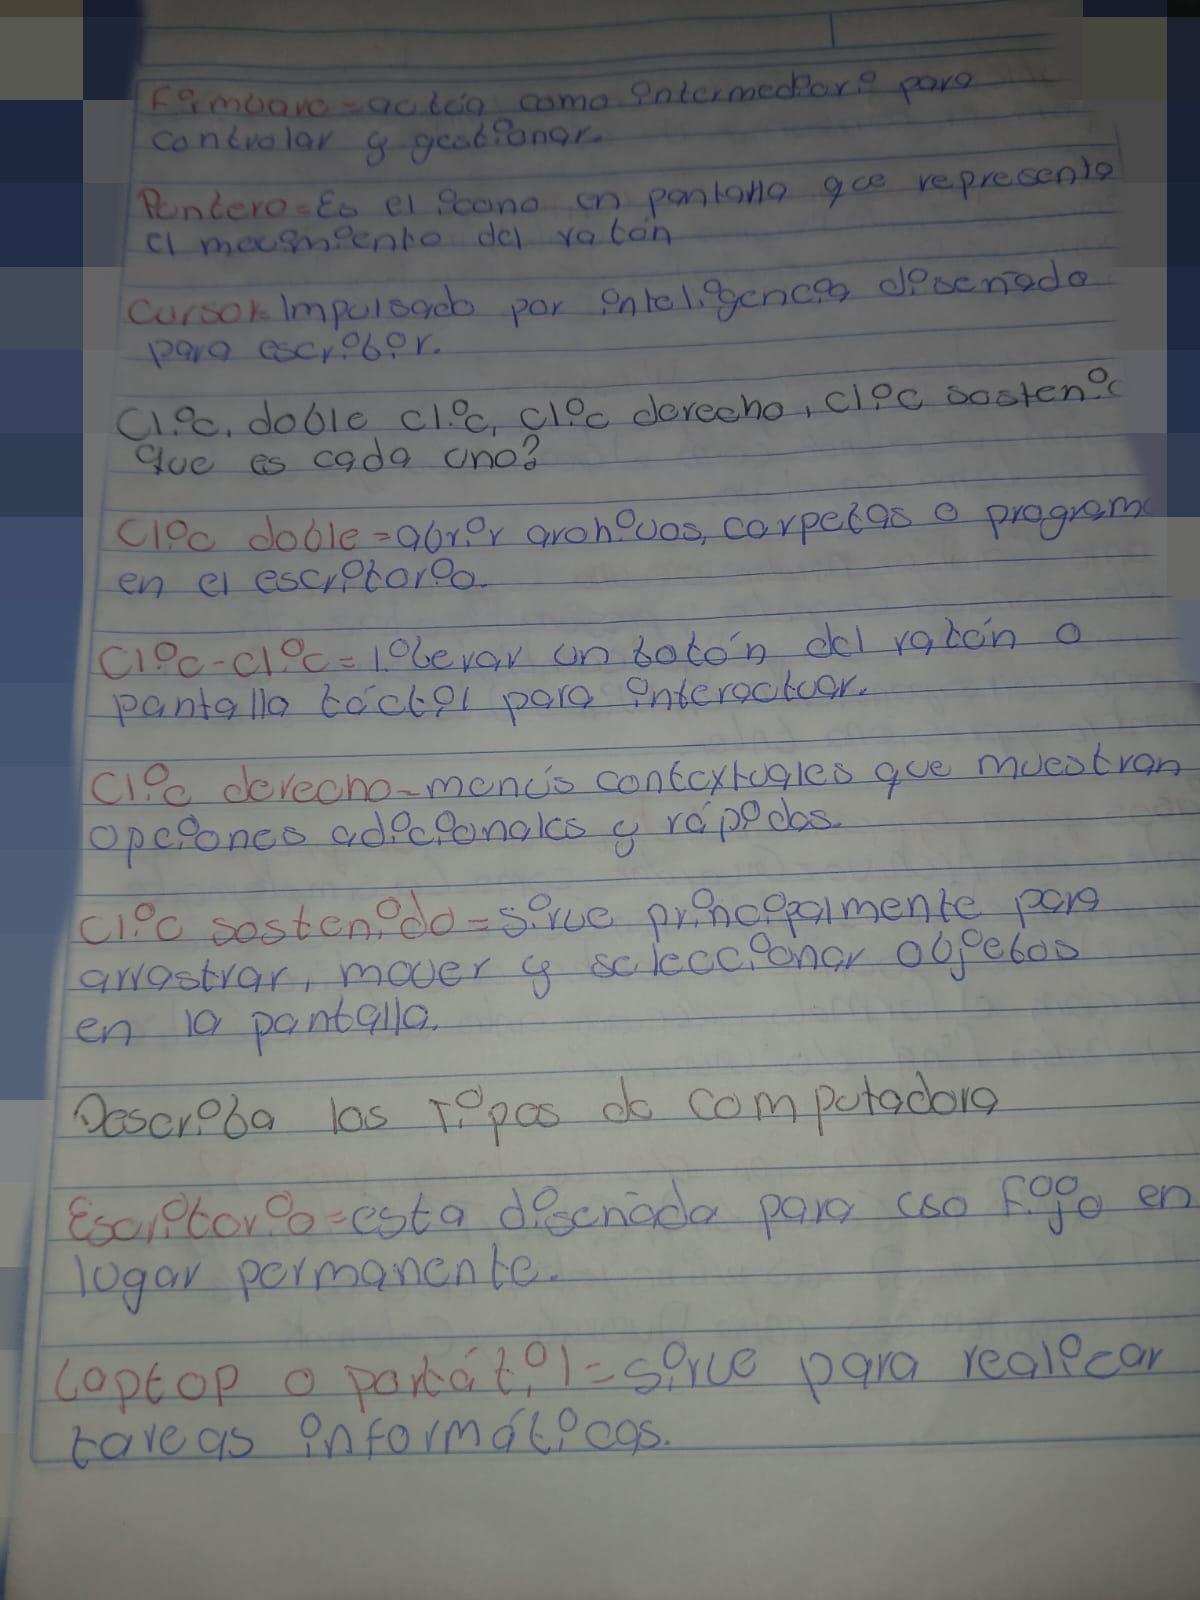 Firmware = actúa como intermediario para
controlar y gestionar.
Puntero = Es el icono en pantalla que representa
el movimiento del ratón
Cursor = Impulsado por inteligencia diseñado
para escribir.
Clic, doble clic, clic derecho, clic sosteni
que es cada uno?
Clic doble = abrir archivos, carpetas o program
en el escritorio.
Clic-clic = liberar un botón del ratón o
pantalla táctil para interactuar.
Clic derecho = menús contextuales que muestran
opciones adicionales y rápidas.
Clic sostenido = sirve principalmente para
arrastrar, mover y seleccionar objetos
en la pantalla.
Describa los Tipos de computadora
Escritorio = esta diseñada para uso Fijo en
lugar permanente.
Laptop o portátil = sirve para realicar
tareas informáticas.